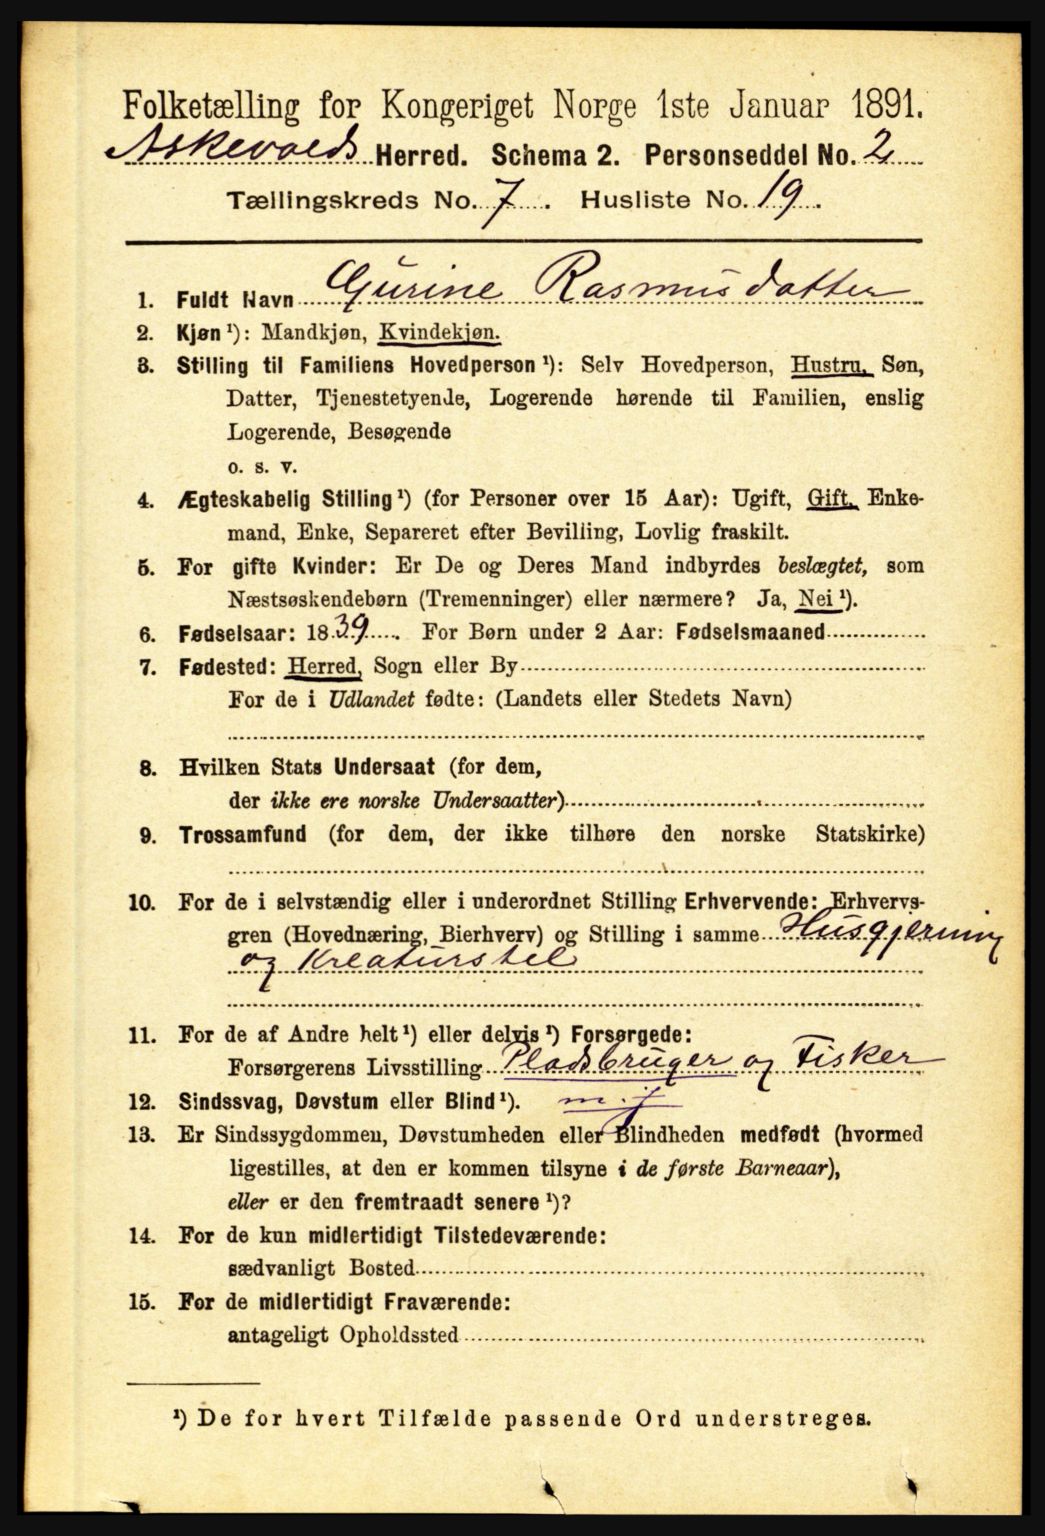 Folketælling for Kongeriget Norge 1ste Januar 1891.
Askevolds Herred. Schema 2. Personseddel No. 2
Tællingskreds No. 7. Husliste No. 19.
1. Fuldt Navn Gurine Rasmusdatter
2. Kjøn¹): Mandkjøn, Kvindekjøn.
3. Stilling til Familiens Hovedperson¹): Selv Hovedperson, Hustru, Søn,
Datter, Tjenestetyende, Logerende hørende til Familien, enslig
Logerende, Besøgende
o. s. v.
4. Ægteskabelig Stilling¹) (for Personer over 15 Aar): Ugift, Gift, Enke-
mand, Enke, Separeret efter Bevilling, Lovlig fraskilt.
5. For gifte Kvinder: Er De og Deres Mand indbyrdes beslægtet, som
Næstsøskendebørn (Tremenninger) eller nærmere? Ja, Nei¹).
6. Fødselsaar: 1839. For Børn under 2 Aar: Fødselsmaaned
7. Fødested: Herred, Sogn eller By
For de i Udlandet fødte: (Landets eller Stedets Navn)
8. Hvilken Stats Undersaat (for dem,
der ikke ere norske Undersaatter)
9. Trossamfund (for dem, der ikke tilhøre den norske Statskirke)
10. For de i selvstændig eller i underordnet Stilling Erhvervende: Erhvervs-
gren (Hovednæring, Bierhverv) og Stilling i samme Husgjerning
og Kreaturstel
11. For de af Andre helt¹) eller delvis¹) Forsørgede:
Forsørgerens Livsstilling Pladsbruger og Fisker
12. Sindssvag, Døvstum eller Blind¹). m. j
13. Er Sindssygdommen, Døvstumheden eller Blindheden medfødt (hvormed
ligestilles, at den er kommen tilsyne i de første Barneaar),
eller er den fremtraadt senere¹)?
14. For de kun midlertidigt Tilstedeværende:
sædvanligt Bosted
15. For de midlertidigt Fraværende:
antageligt Opholdssted
¹) De for hvert Tilfælde passende Ord understreges.